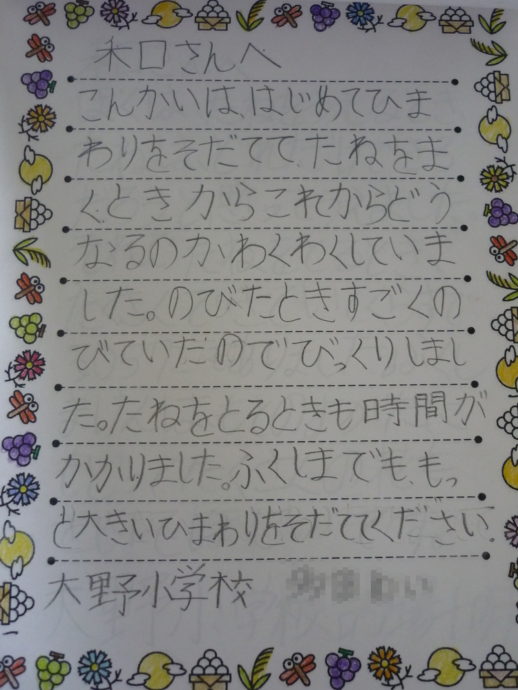 木口さんへ
こんかいは、はじめてひま
わりをそだてて、たねをま
くときからこれからどう
なるのかわくわくしていま
した。のびたときすごくの
びていたのでびっくりしまし
た。たねをとるときも時間が
かかりました。ふくしまでも、もっ
と大きいひまわりをそだててください。
大野小学校